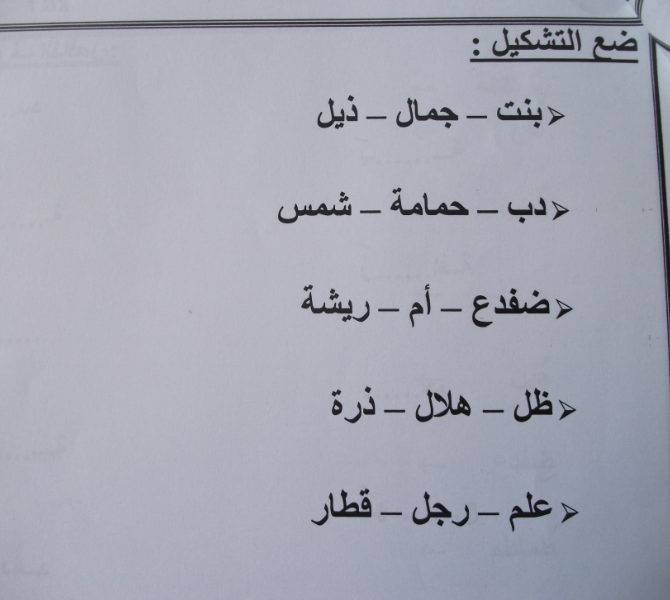 ضع التشكيل :
بنت – جمال – ذيل
دب – حمامة – شمس
ضفدع – أم – ريشة
ظل – هلال – ذرة
علم – رجل – قطار